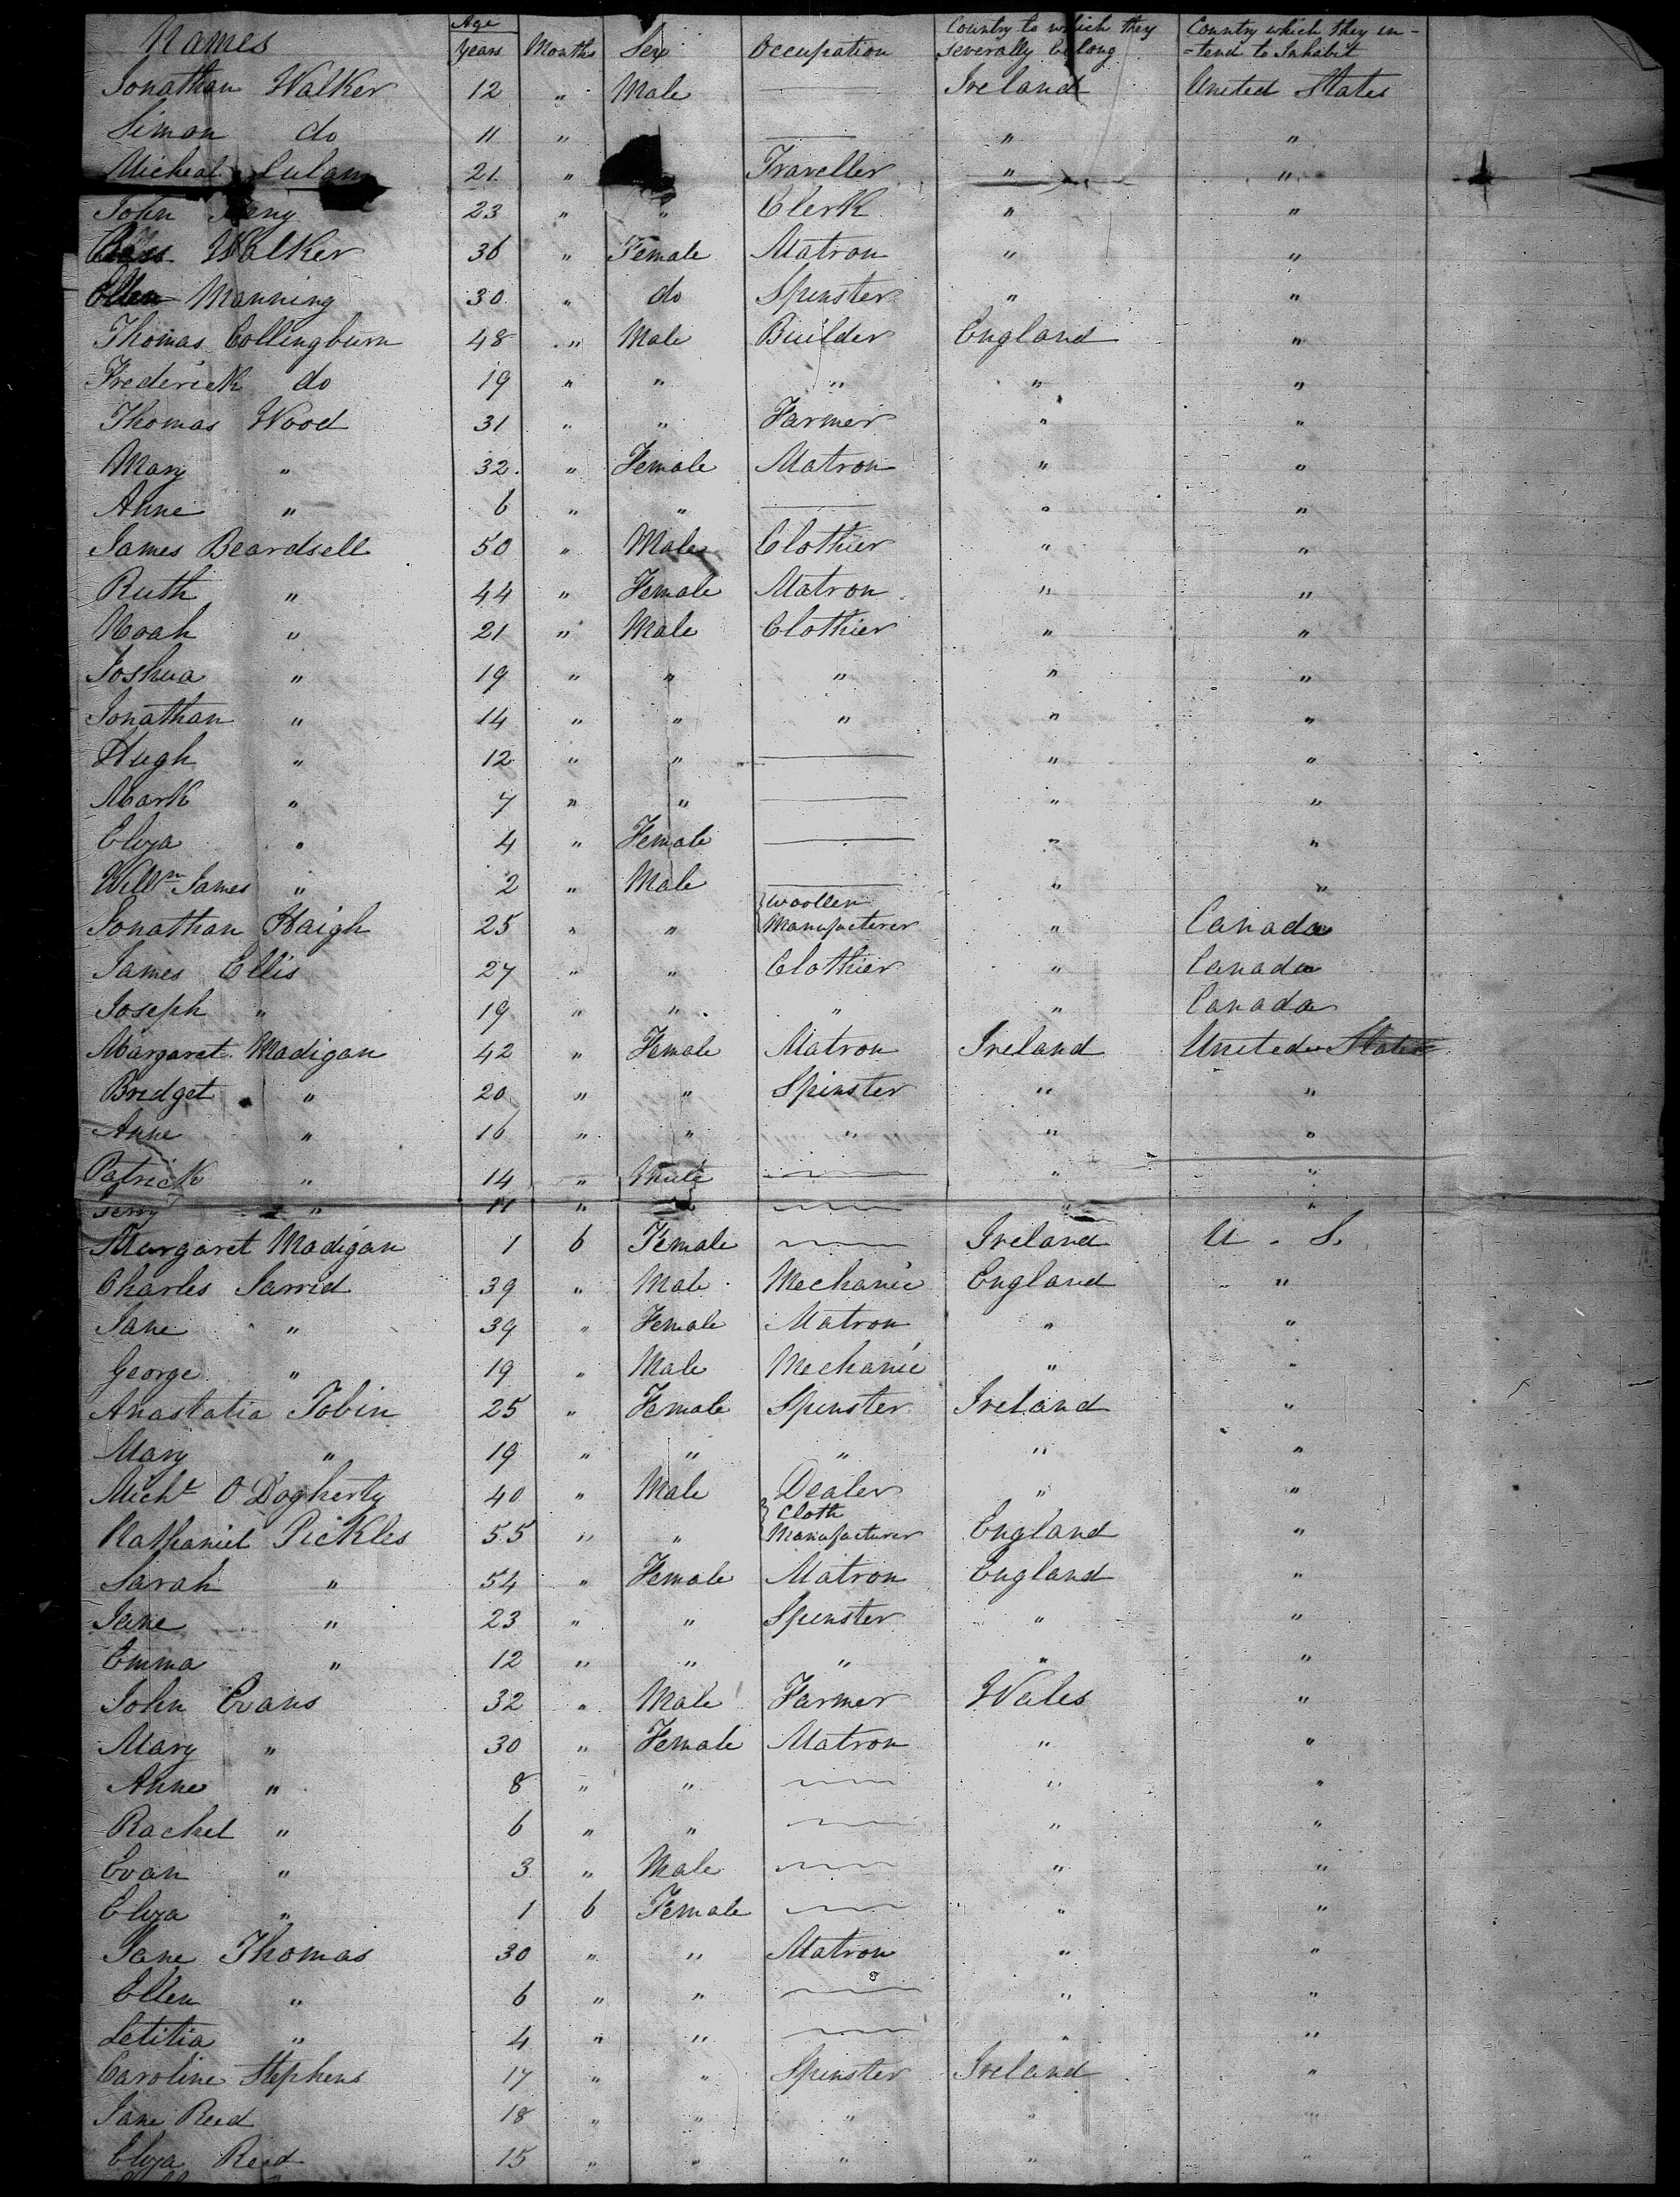 Names Age Years Months Sex Occupation Country to which they severally belong Country which they in- -tend to Inhabit
Jonathan Walker 12 " Male — Ireland United States
Simon do 11 " — " "
Micheal 21 " Traveller " "
John 23 " " Clerk " "
Walker 36 " Female Matron " "
Ellen Manning 30 " do Spinster " "
Thomas Collingburn 48 " Male Builder England "
Frederick do 19 " " " " "
Thomas Wood 31 " " Farmer " "
Mary " 32 " Female Matron " "
Anne " 6 " " — " "
James Beardsell 50 " Male Clothier " "
Ruth " 44 " Female Matron " "
Noah " 21 " Male Clothier " "
Joshua " 19 " " " " "
Jonathan " 14 " " " " "
Hugh " 12 " " — " "
Mark " 7 " " — " "
Eliza " 4 " Female — " "
Willm James " 2 " Male — " "
Jonathan Haigh 25 " " Woollen Manufacturer " Canada
James Ellis 27 " " Clothier " Canada
Joseph " 19 " " " " Canada
Margaret Madigan 42 " Female Matron Ireland United States
Bridget " 20 " " Spinster " "
Anne " 16 " " " " "
Patrick " 14 " Male — " "
Jerry " 11 " " — " "
Margaret Madigan 1 6 Female — Ireland U. S.
Charles Jarrid 39 " Male Mechanic England "
Jane " 39 " Female Matron " "
George " 19 " Male Mechanic " "
Anastatia Tobin 25 " Female Spinster Ireland "
Mary " 19 " " " " "
Michl O Dogherty 40 " Male Dealer " "
Nathaniel Pickles 55 " " Cloth Manufacturer England "
Sarah " 54 " Female Matron England "
Jane " 23 " " Spinster " "
Emma " 12 " " " " "
John Evans 32 " Male Farmer Wales "
Mary " 30 " Female Matron " "
Anne " 8 " " — " "
Rachel " 6 " " — " "
Evan " 3 " Male — " "
Eliza " 1 6 Female — " "
Jane Thomas 30 " " Matron " "
Ellen " 6 " " — " "
Letitia " 4 " " — " "
Caroline Stephens 17 " " Spinster Ireland "
Jane Reed 18 " " " " "
Eliza Reed 15 " " " " "